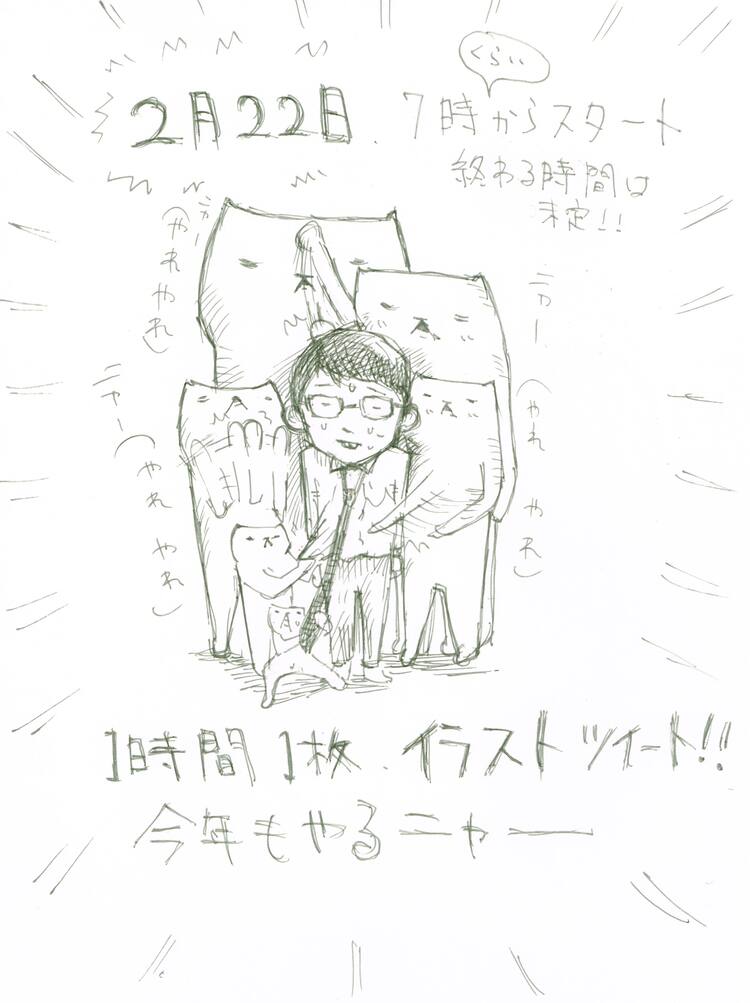 くらい
2月22日. 7時からスタート
終わる時間は
未定!!
ニャー
(やれやれ)
ニャー
(やれ やれ)
ニャー
(やれ やれ)
1時間1枚.イラストツイート!!
今年もやるニャー